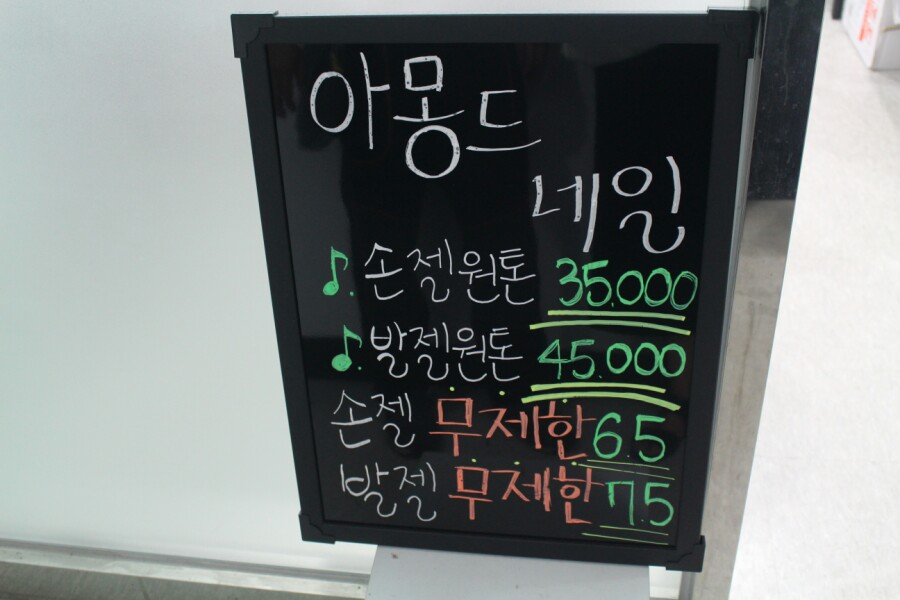 아몽드
네일
♪. 손젤원톤 35.000
♪. 발젤원톤 45.000
손젤 무제한 6.5
발젤 무제한 7.5